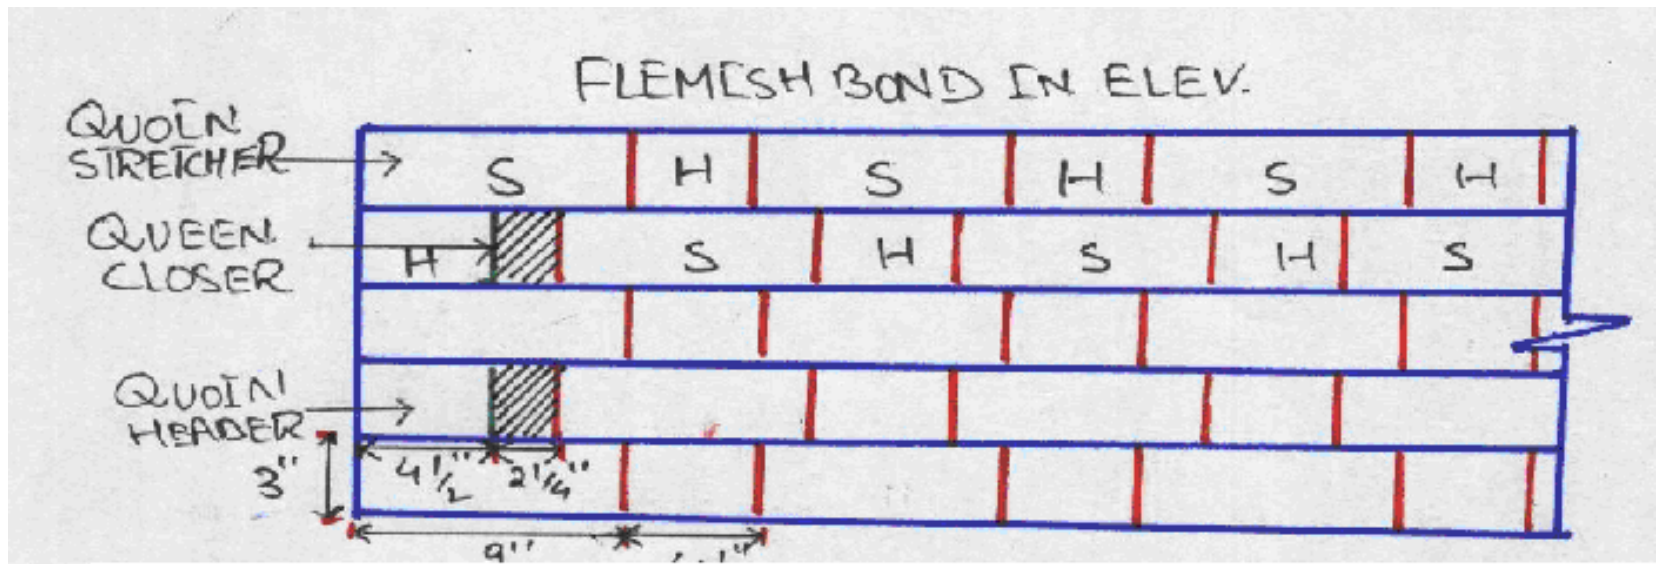 FLEMISH BOND IN ELEV.
QUOIN
STRETCHER
S H S H S H
QUEEN
CLOSER
H S H S H S
QUOIN
HEADER
3" 4 1/2" 2 1/4"
9"